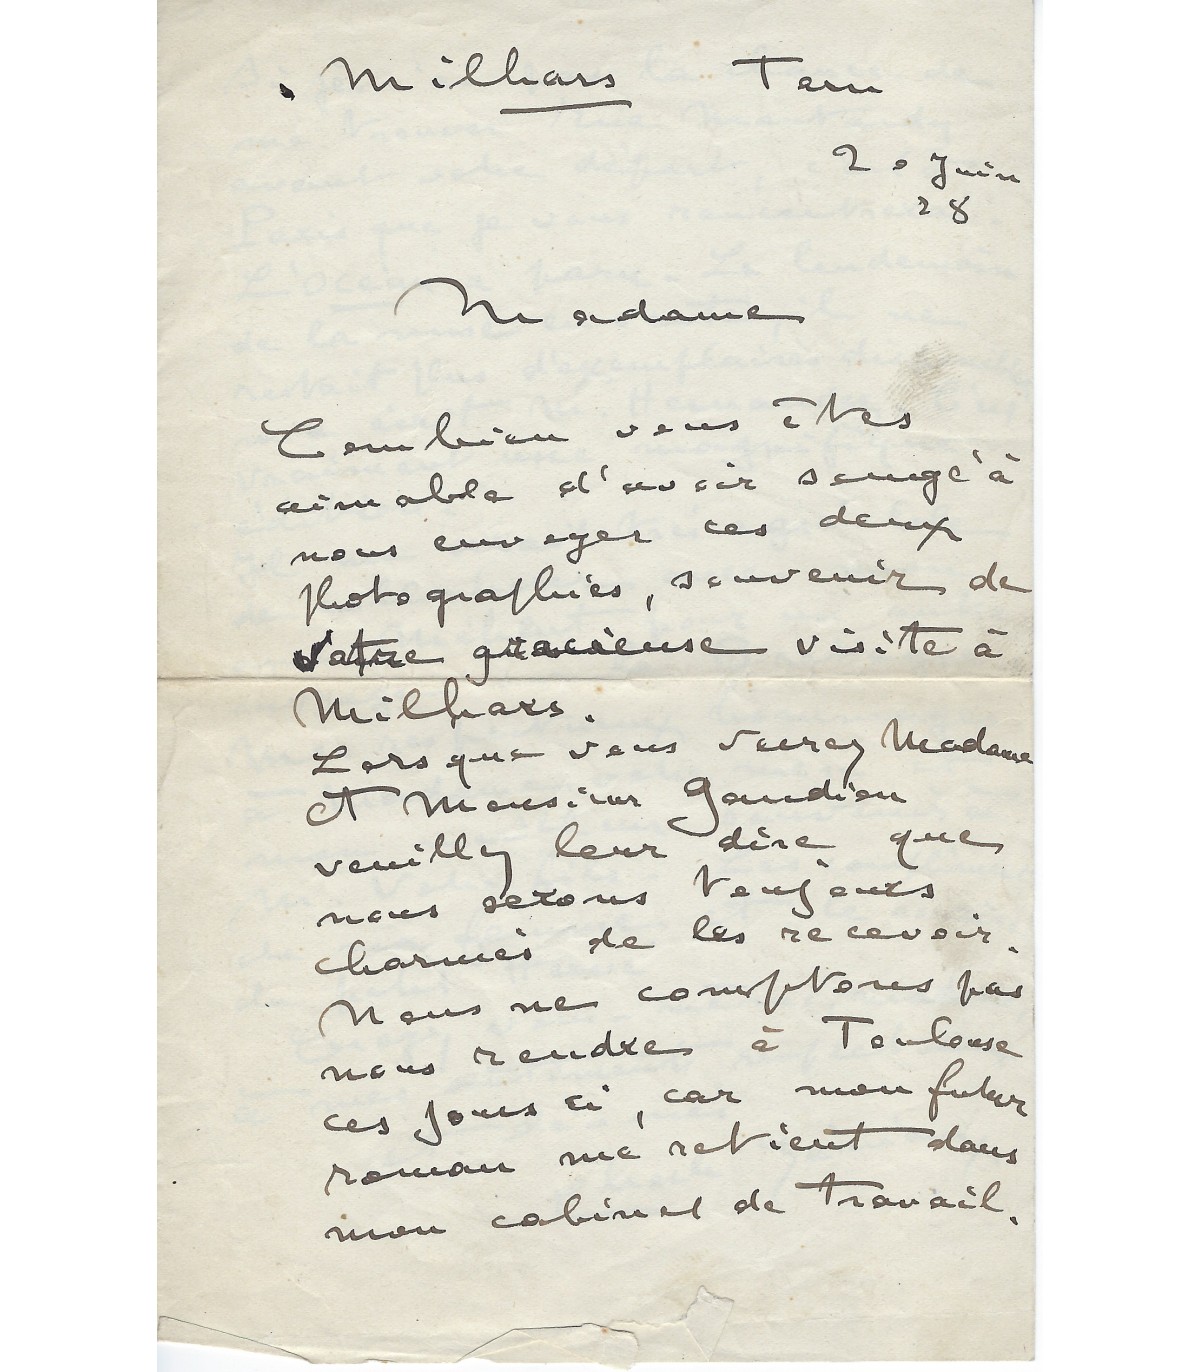 Milhars Tarn
20 Juin
28
Madame
Combien vous êtes
aimable d'avoir songé à
nous envoyer ces deux
photographies, souvenir de
votre gracieuse visite à
Milhars.
Lorsque vous verrez Madame
et Monsieur
veuillez leur dire que
nous serons toujours
charmés de les recevoir.
Nous ne comptons pas
nous rendre à Toulouse
ces jours ci, car mon futur
roman me retient dans
mon cabinet de travail.